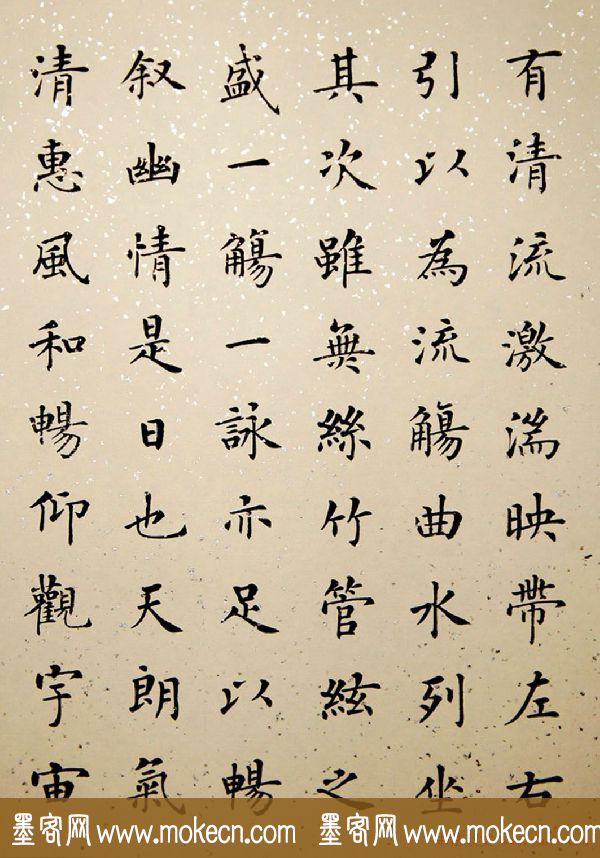 有清流激湍映帶左右
引以為流觴曲水列坐
其次雖無絲竹管絃之
盛一觴一詠亦足以暢
叙幽情是日也天朗氣
清惠風和暢仰觀宇宙
墨客网 www.mokecn.com 墨客网 www.mokecn.com